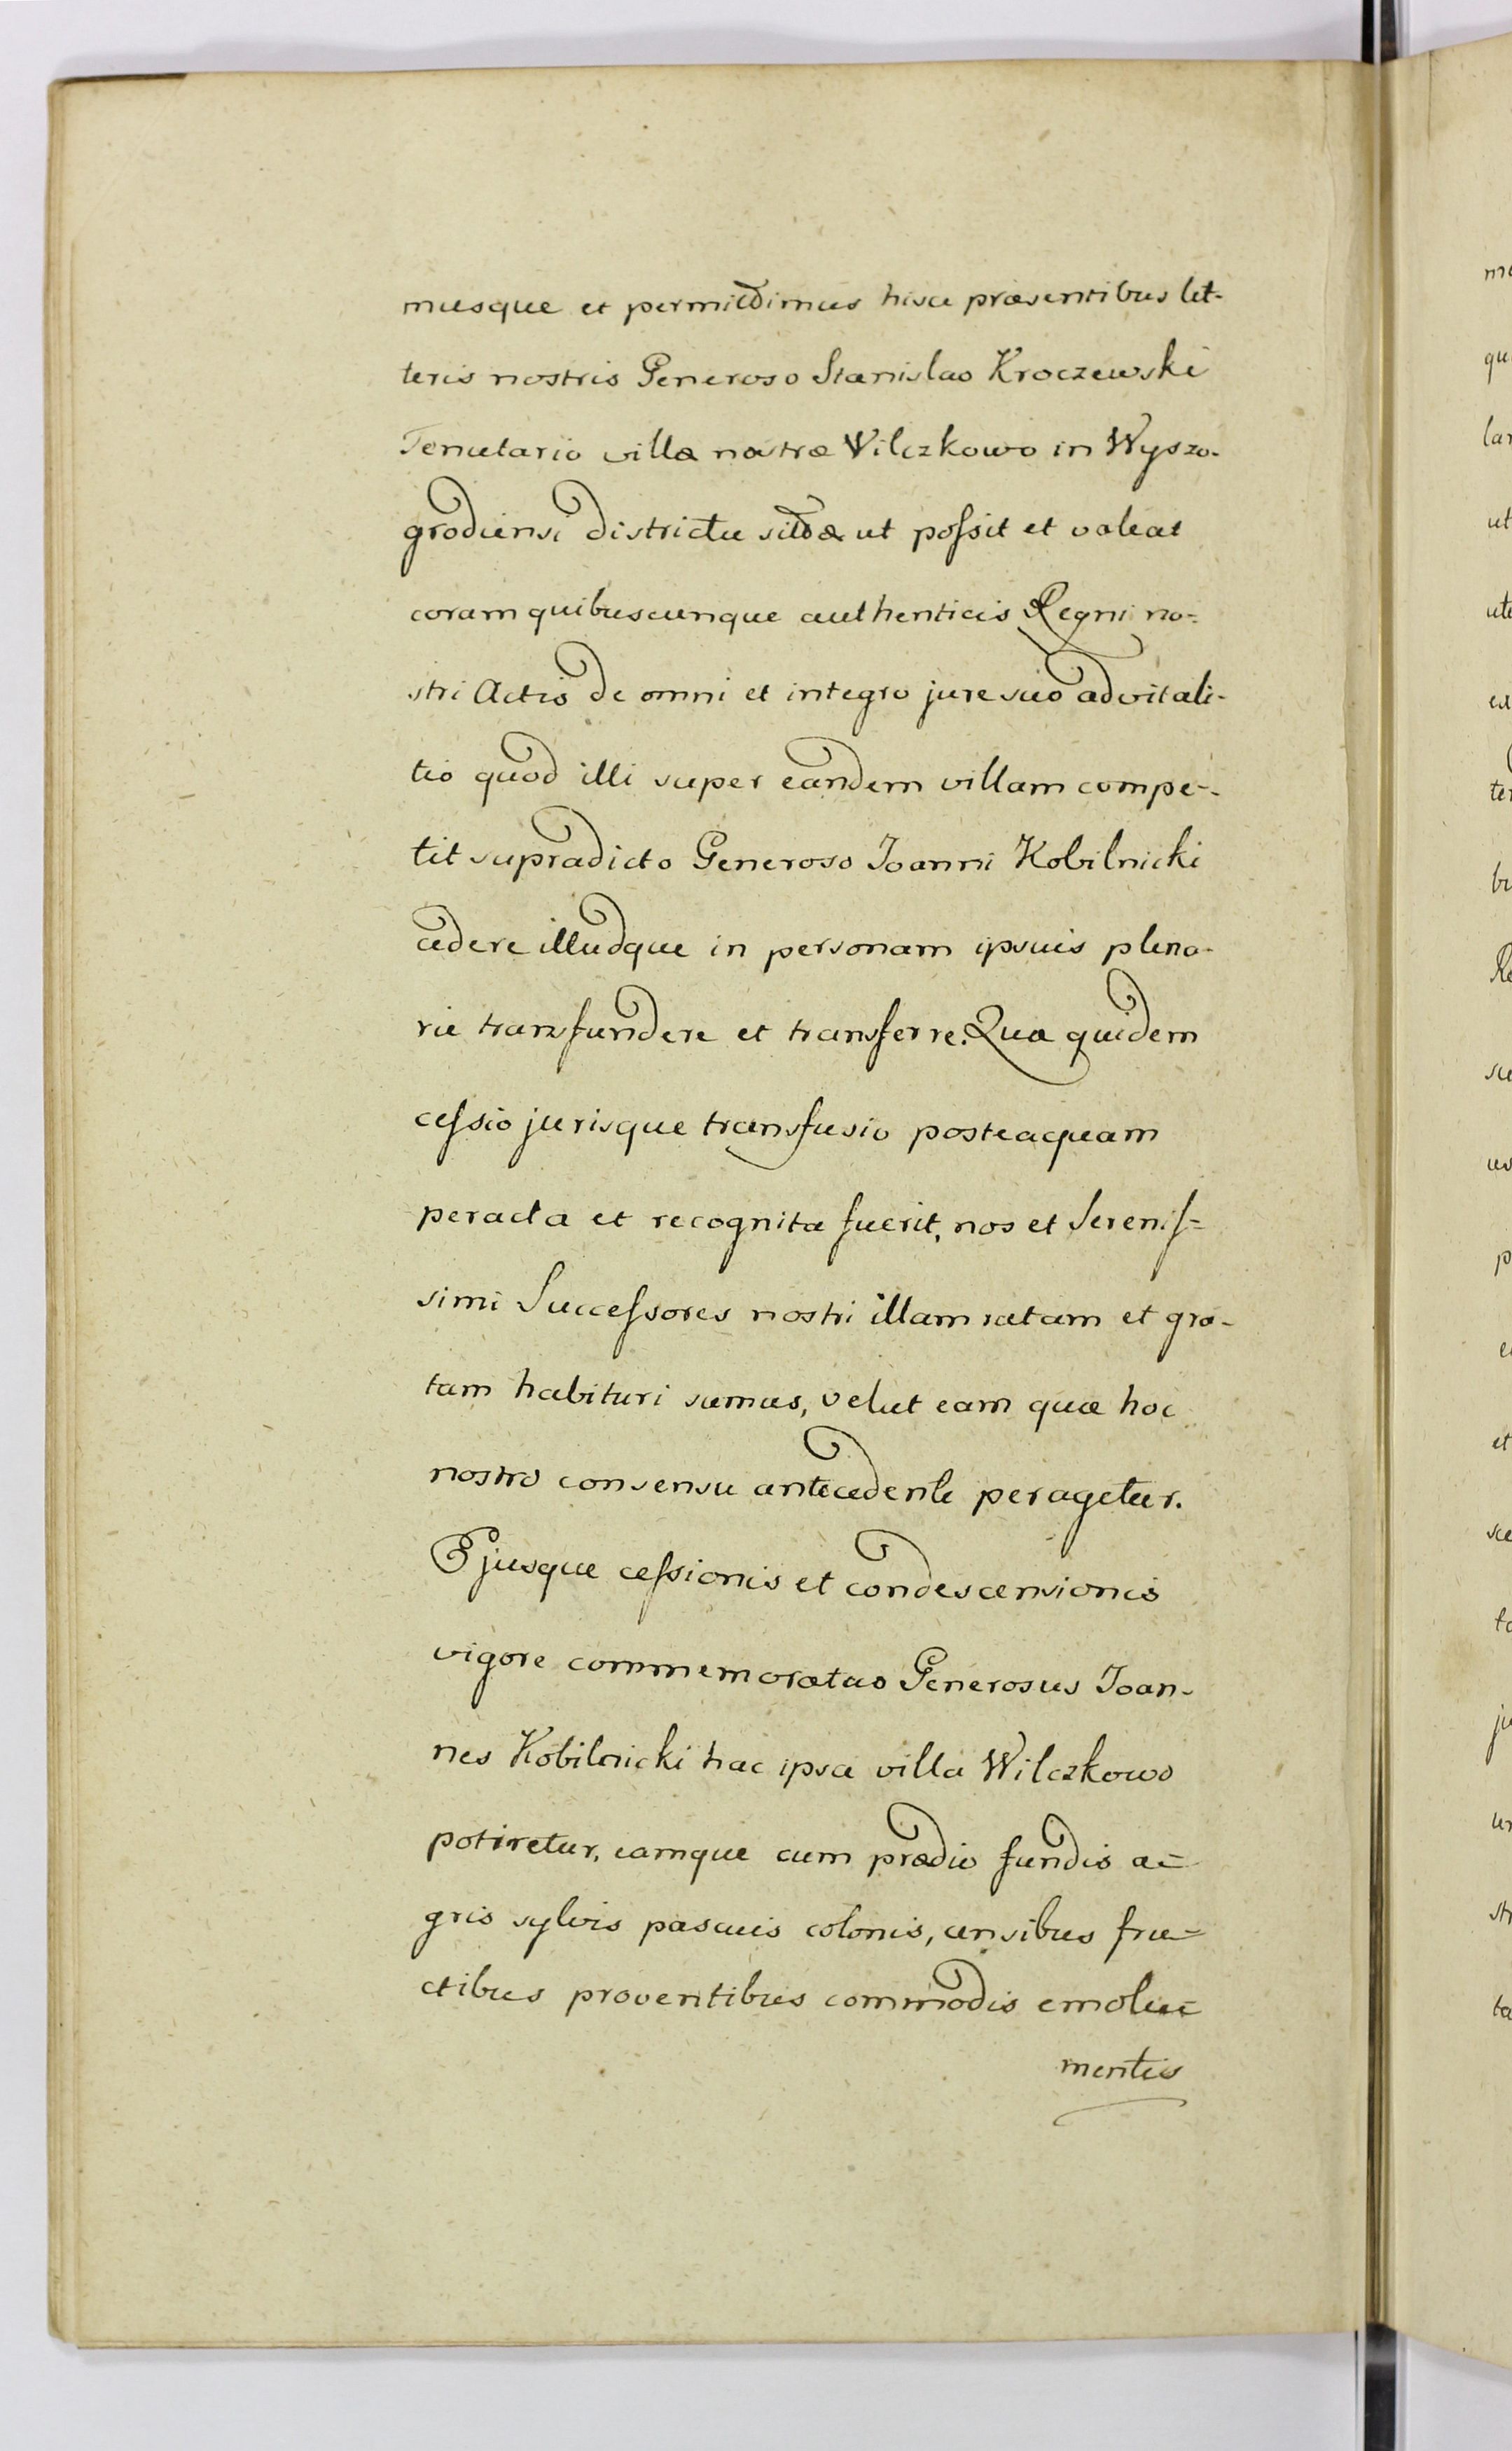 musque et permittimus hisce præsentibus lit-
teris nostris Generoso Stanislao Kroczewski
Tenutario villæ nostræ Vilczkowo in Wyszo-
grodiensi districtu sitæ ut possit et valeat
coram quibuscunque authenticis Regni no-
stri Actis de omni et integro jure suo advitali-
tio quod illi super eandem villam compe-
tit supradicto Generoso Joanni Kobilnicki
cedere illudque in personam ipsuis plena-
rie transfundere et transferre. Quæ quidem
cessio jurisque transfusio posteaquam
peracta et recognita fuerit, nos et Serenis-
simi Successores nostri illam ratam et gra-
tam habituri sumus, velut eam quæ hoc
nostro consensu antecedente peragetur.
Ejusque cessionis et condescensionis
vigore commemoratus Generosus Joan-
nes Kobilnicki hac ipsa villa Wilczkowo
potiretur, eamque cum prædio fundis a-
gris sylvis pascuis colonis, censibus fru-
ctibus proventibus commodis emolu-
mentis